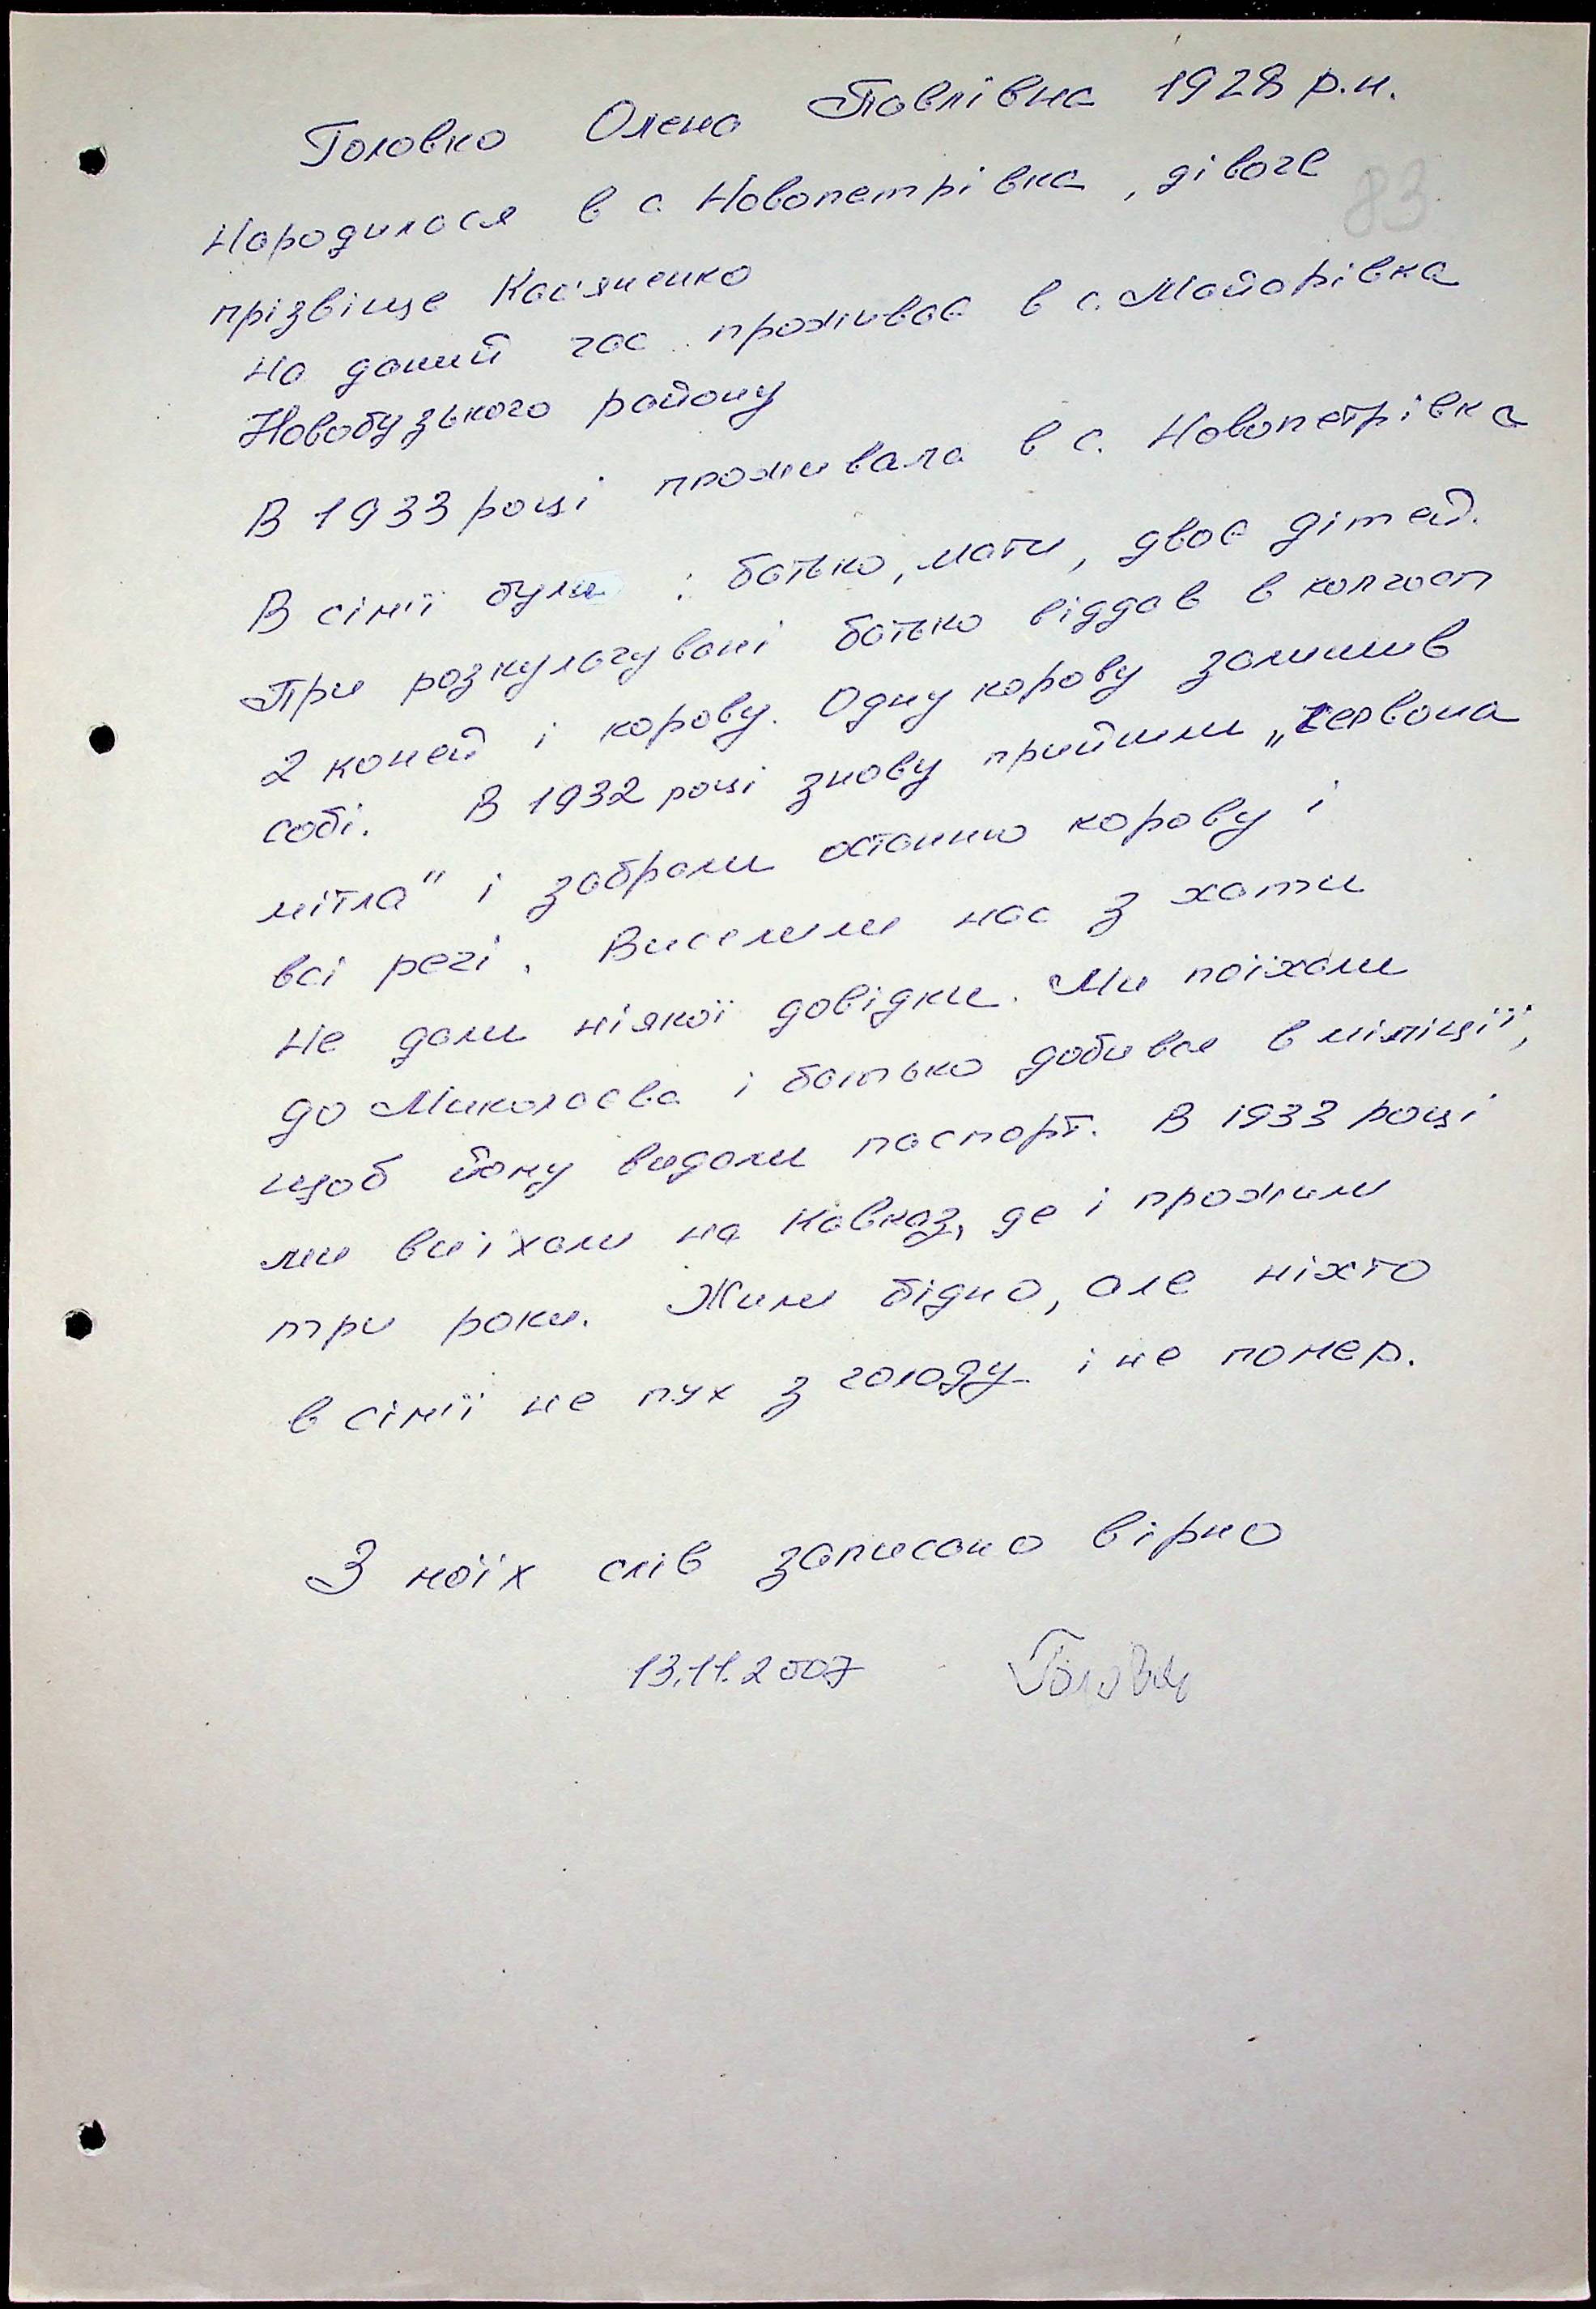 Головко Олена Павлівна 1928 р.н.
83
Народилася в с. Новопетрівка, дівоче
прізвіще Кас'яненко
На даний час проживає в с. Майорівка
Новобузького району
В 1933 році проживала в с. Новопетрівка
В сім'ї були : батько, мати, двоє дітей.
При розкулачувані батько віддав в колгосп
2 коней і корову. Одну корову залишив
собі. В 1932 році знову прийшли „червона
мітла" і забрали останню корову і
всі речі. Виселили нас з хати
Не дали ніякої довідки. Ми поїхали
до Миколаєва і батько добився в міліції,
щоб йому видали паспорт. В 1933 році
ми виїхали на Кавказ, де і прожили
три роки. Жили бідно, але ніхто
в сім'ї не пух з голоду і не помер.
З моїх слів записано вірно
13.11.2007 Головко